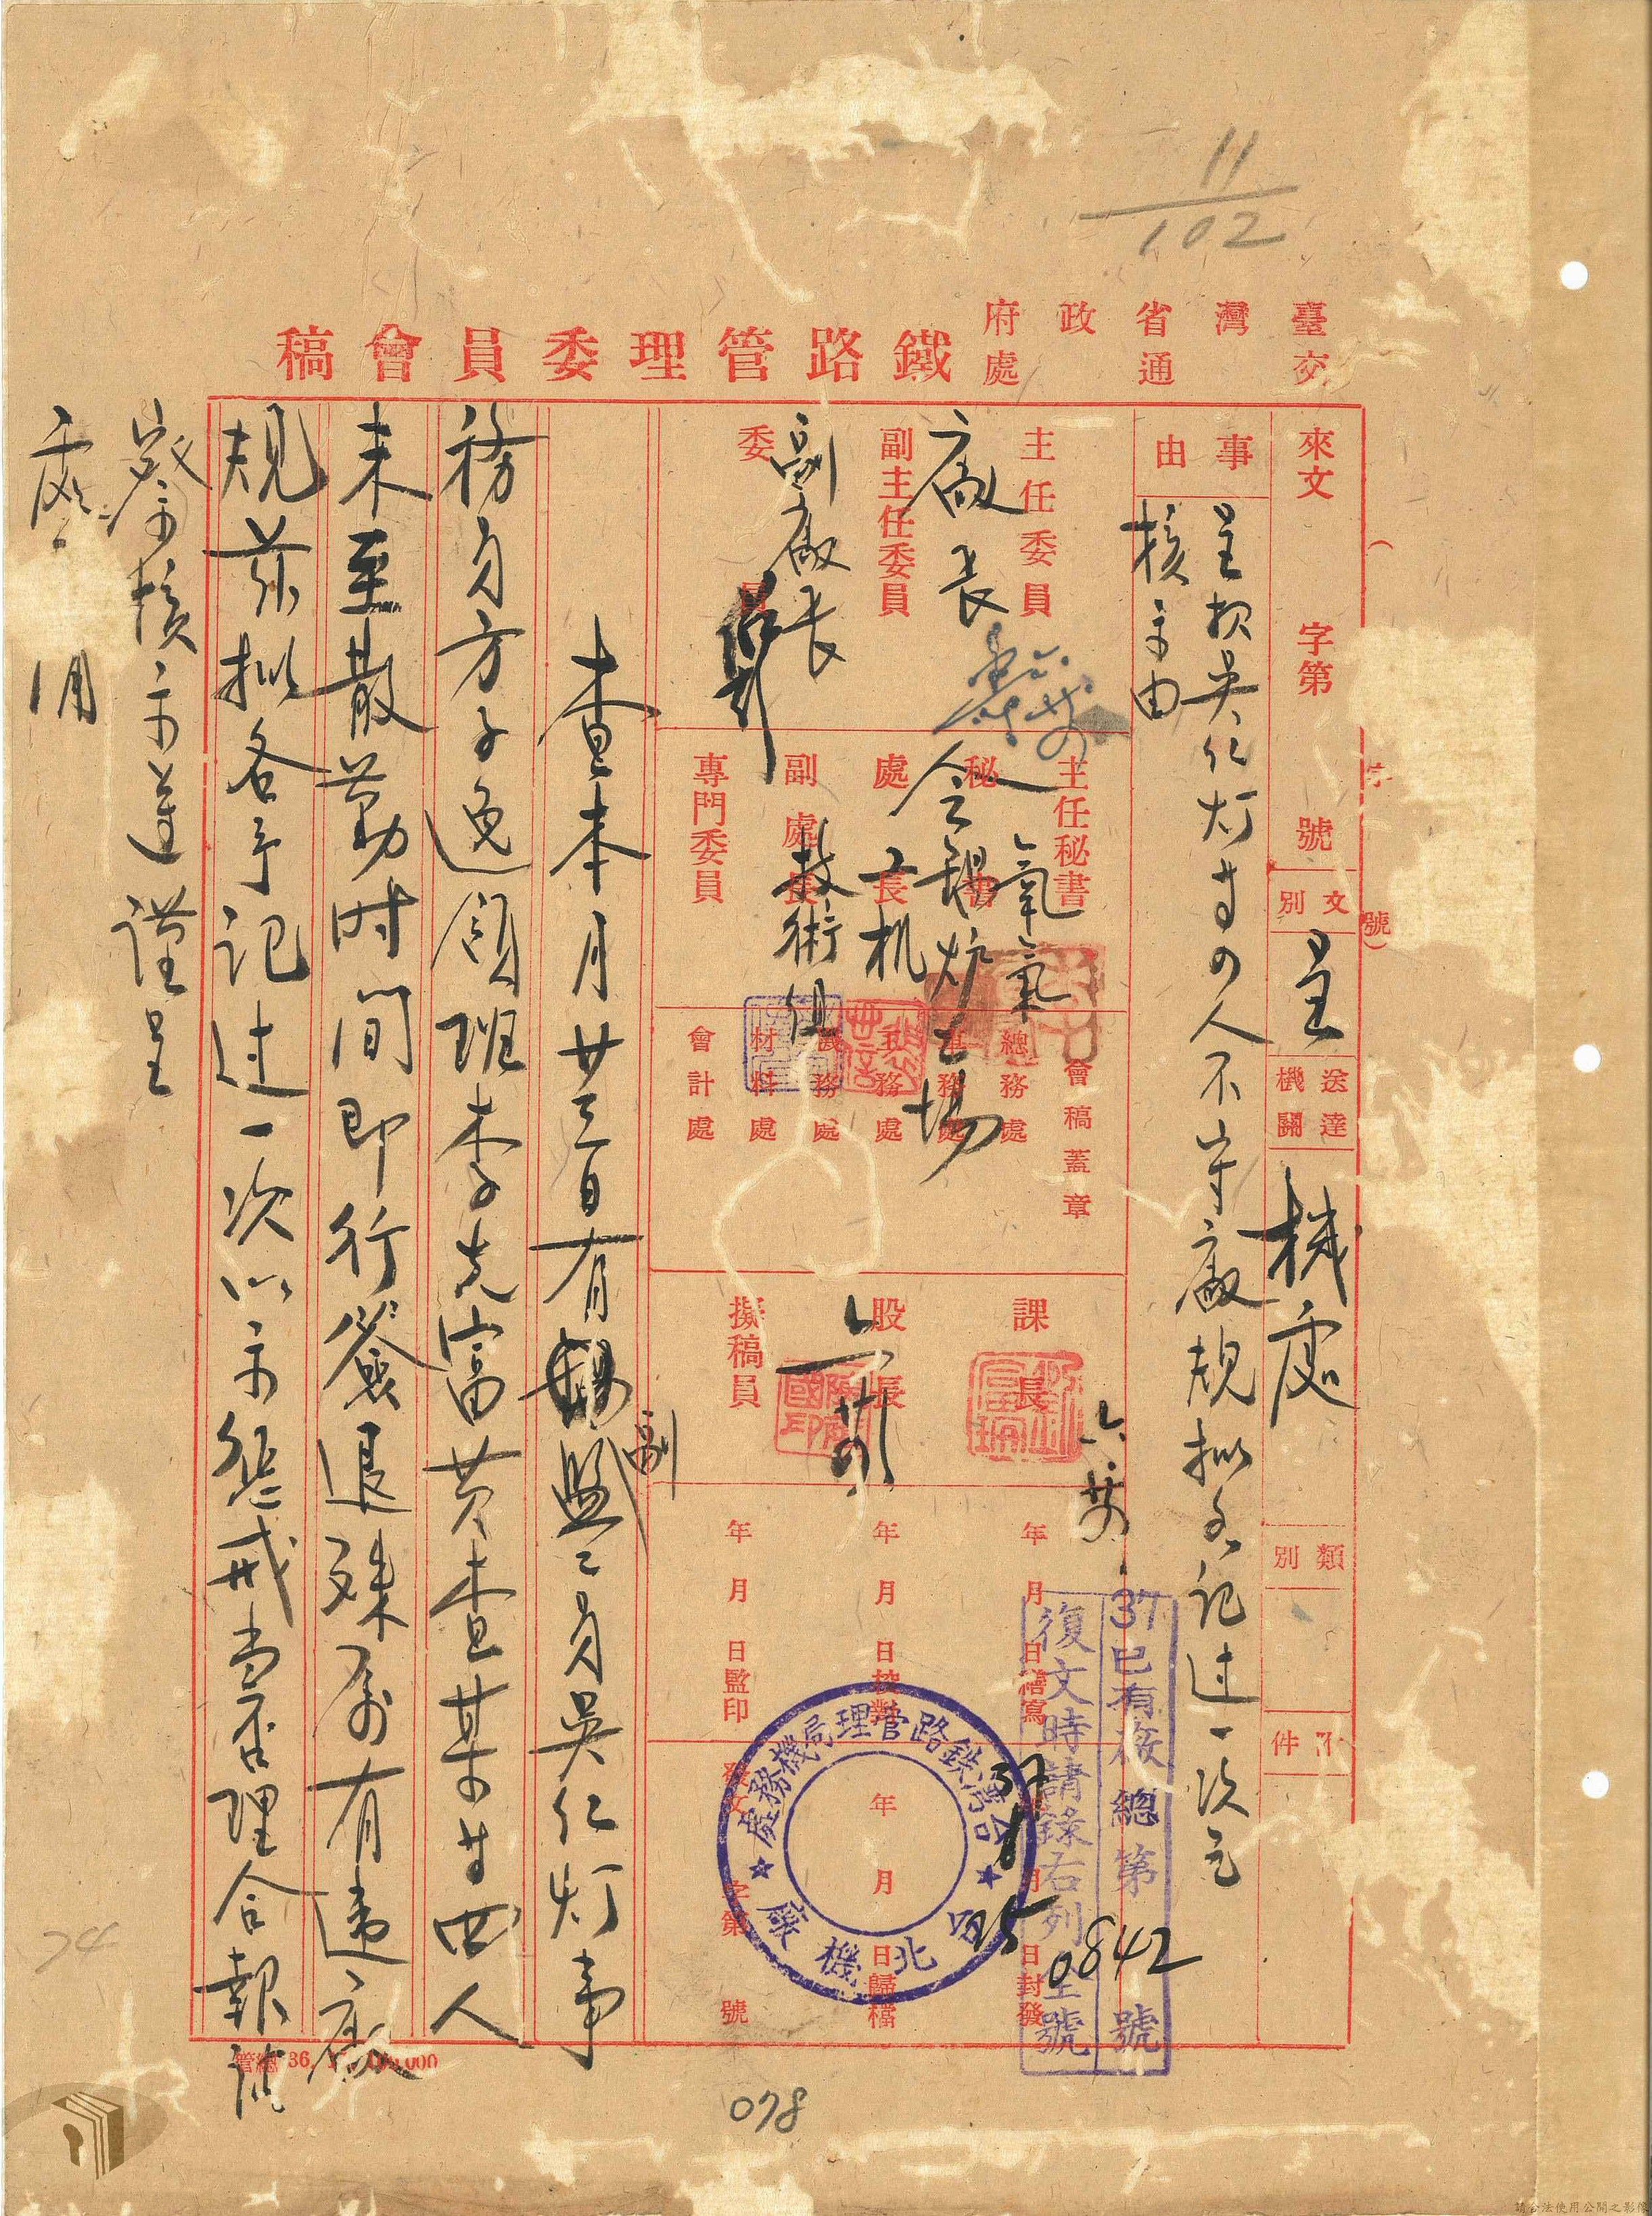 11
102
臺灣省政府
交通處
鐵路管理委員會稿
來文 字第 號
文別 呈
送達機關 機處
類別
附件
( 字 號)
事由
呈報吳仁灯等四人不守廠規拟各記过一次乞
核示由
主任委員
廠長
副主任委員
副廠長
委員
主任秘書
秘書
處長
副處長
專門委員
氧氣
合錫炉工場
工机
技術組
會稿蓋章
總務處
車務處
工務處
機務處
材料處
會計處
課長
股長
擬稿員
年 月 日繕寫
年 月 日校對
年 月 日監印
年 月 日封發
年 月 日歸檔
發文 字第 號
37已有廠總第0842號
復文時請錄右列文號
37
25
台灣鉄路管理局機務處
台北機廠
查本月廿三日有副監工員吳仁灯事
務員方子逸領班李克富黃查某等四人
未至散勤时间即行簽退殊属有違廠
規茲拟各予记过一次以示懲戒当否理合報請
鑒核示遵謹呈
處
1用
管總 36,
74
078
請合法使用公開之影像